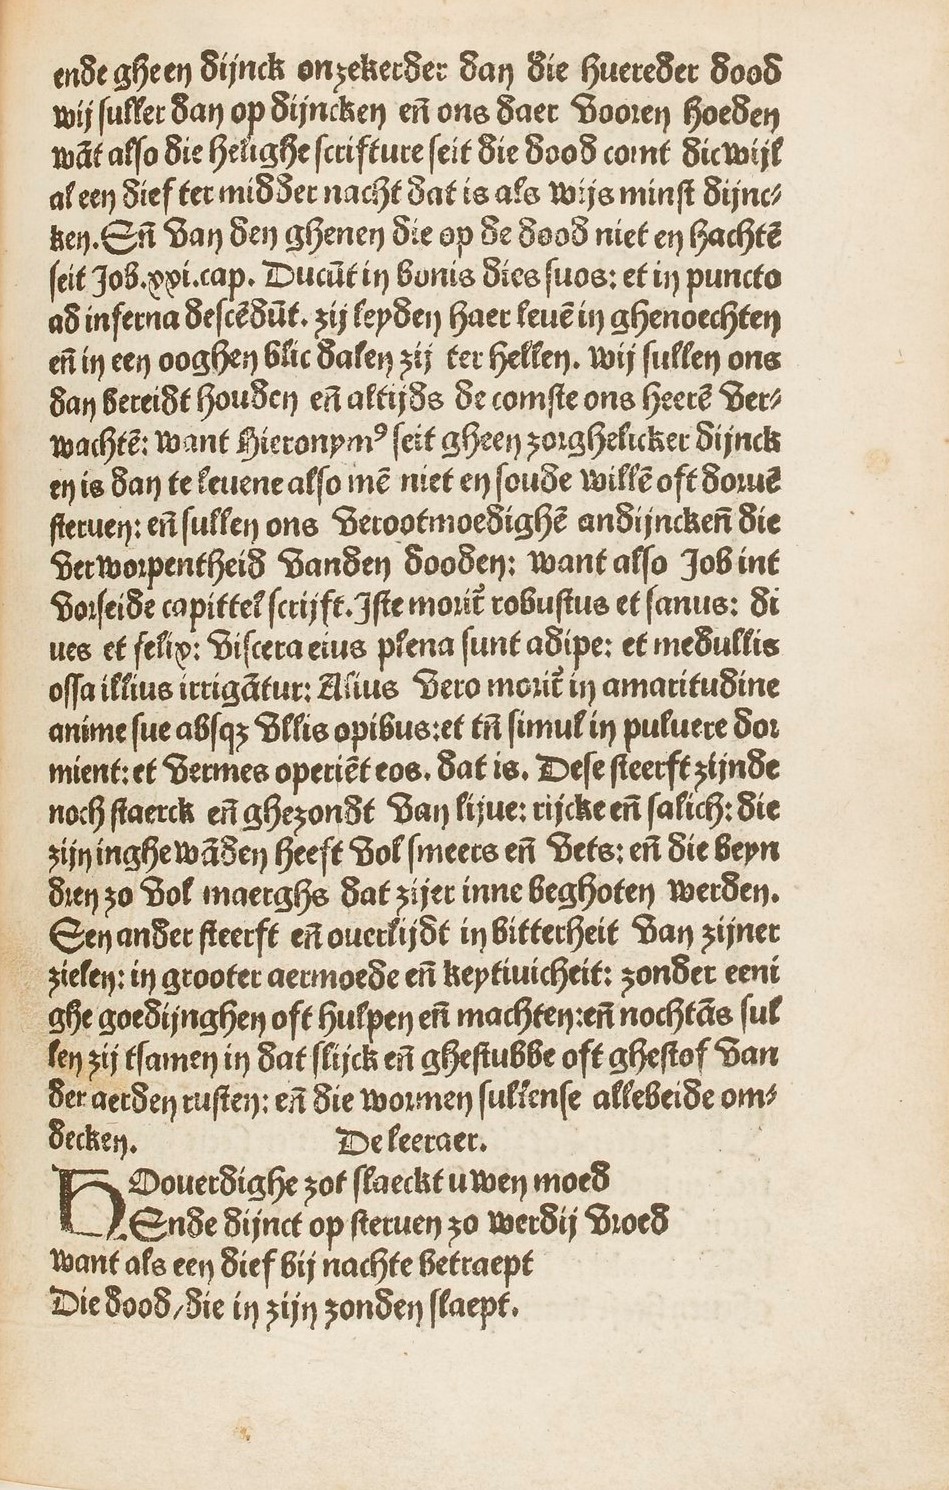 ende gheen dijnck onzekerder dan die huereder dood
wij suller dan op dijncken en̄ ons daer vooren hoeden
wāt also die helighe scrifture seit die dood comt dicwijl
al een dief ter midder nacht dat is als wijs minst dijnc⸗
ken. En̄ van den ghenen die op de dood niet en hachtē
seit Job.xxi.cap. Ducūt in bonis dies suos: et in puncto
ad inferna descēdūt. zij leyden haer leuē in ghenoechten
en̄ in een ooghen blic dalen zij ter hellen. wij sullen ons
dan bereidt houden en̄ altijds de comste ons heerē ver⸗
wachtē: want Hieronymꝰ seit gheen zorghelicker dijnck
en is dan te leuene also mē niet en soude willē oft doruē
steruen: en̄ sullen ons verootmoedighē andijncken̄ die
verworpentheid vanden dooden: want also Job int
vorseide capittel scrijft. Iste morit᷑ robustus et sanus: di
ues et felix: viscera eius plena sunt adipe: et medullis
ossa illius irrigātur: Alius vero morit᷑ in amaritudine
anime sue absqꝫ vllis opibus: et tn̄ simul in puluere dor
mient: et vermes operiēt eos. dat is. Dese steerft zijnde
noch staerck en̄ ghezondt van lijue: rijcke en̄ salich: die
zijn inghewāden heeft vol smeers en̄ vets: en̄ die beyn
dren zo vol maerghs dat zijer inne beghoten werden.
Een ander steerft en̄ ouerlijdt in bitterheit van zijner
zielen: in grooter aermoede en̄ keytiuicheit: zonder eeni
ghe goedijnghen oft hulpen en̄ machten: en̄ nochtās sul
len zij tsamen in dat slijck en̄ ghestubbe oft ghestof van
der aerden rusten: en̄ die wormen sullense allebeide om⸗
decken. De leeraer.
HOouerdighe zot slaeckt uwen moed
Ende dijnct op steruen zo werdij vroed
want als een dief bij nachte betraept
Die dood/die in zijn zonden slaept.